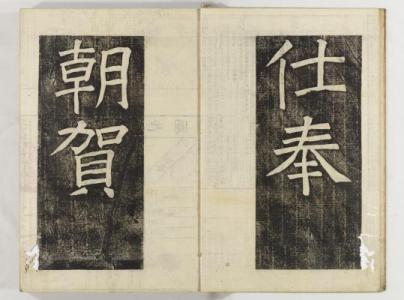 仕奉
朝賀